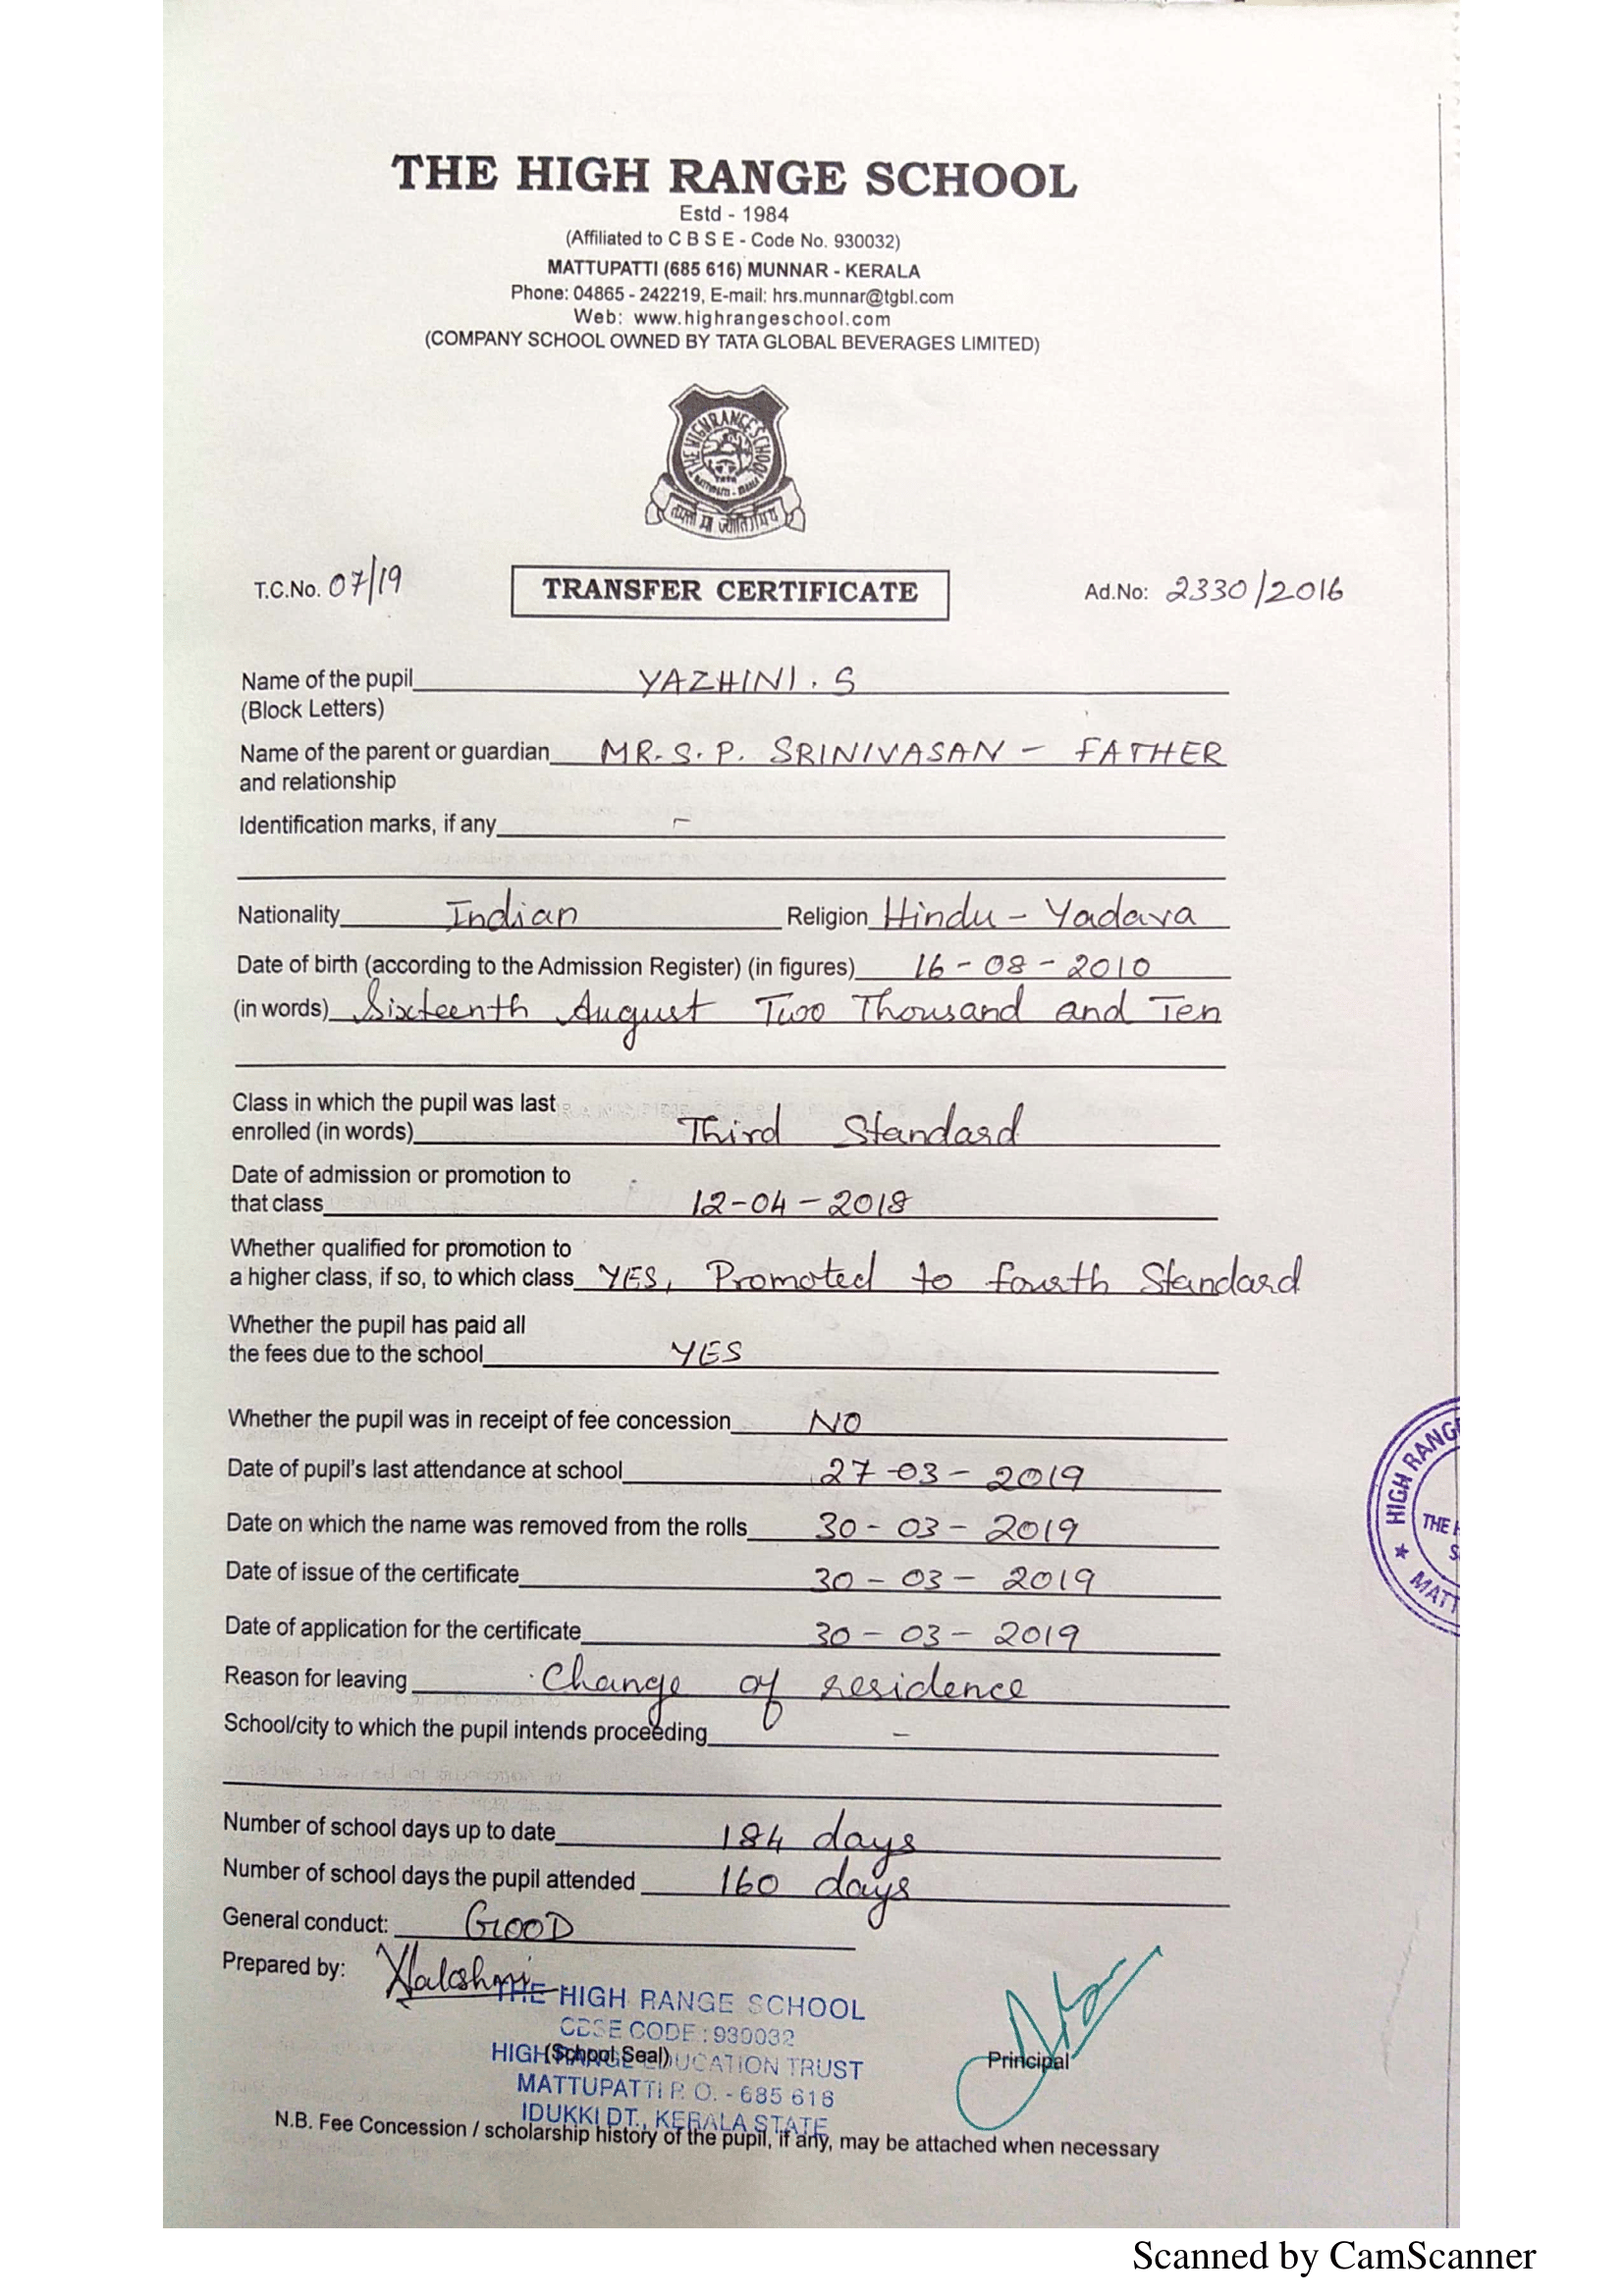 THE HIGH RANGE SCHOOL
Estd - 1984
(Affiliated to C B S E - Code No. 930032)
MATTUPATTI (685 616) MUNNAR - KERALA
Phone: 04865 - 242219, E-mail: hrs.munnar@tgbl.com
Web: www.highrangeschool.com
(COMPANY SCHOOL OWNED BY TATA GLOBAL BEVERAGES LIMITED)
THE HIGH RANGE SCHOOL
TATA
तमसो मा ज्योतिर्गमय
T.C.No. 07/19 TRANSFER CERTIFICATE Ad.No: 2330/2016
Name of the pupil YAZHINI. S
(Block Letters)
Name of the parent or guardian MR. S. P. SRINIVASAN - FATHER
and relationship
Identification marks, if any -
Nationality Indian Religion Hindu - Yadava
Date of birth (according to the Admission Register) (in figures) 16-08-2010
(in words) Sixteenth August Two Thousand and Ten
Class in which the pupil was last
enrolled (in words) Third Standard
Date of admission or promotion to
that class 12-04-2018
Whether qualified for promotion to
a higher class, if so, to which class YES, Promoted to fourth Standard
Whether the pupil has paid all
the fees due to the school YES
Whether the pupil was in receipt of fee concession NO
Date of pupil's last attendance at school 27-03-2019
Date on which the name was removed from the rolls 30-03-2019
Date of issue of the certificate 30-03-2019
Date of application for the certificate 30-03-2019
Reason for leaving Change of residence
School/city to which the pupil intends proceeding -
Number of school days up to date 184 days
Number of school days the pupil attended 160 days
General conduct: GOOD
Prepared by:
THE HIGH RANGE SCHOOL
CBSE CODE : 930032
HIGH RANGE EDUCATION TRUST
(School Seal)
Principal
MATTUPATTI P. O. - 685 616
IDUKKI DT., KERALA STATE
N.B. Fee Concession / scholarship history of the pupil, if any, may be attached when necessary
HIGH RANG
THE
MATT
Scanned by CamScanner